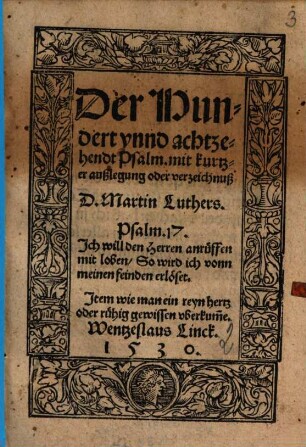 3
Der Hun⸗
dert vnnd achtze⸗
hendt Psalm. mit kurtz⸗
er außlegung oder verzeichnuß
D. Martin Luthers.
Psalm. 17.
Ich will den Herren anrüffen
mit loben/ So wird ich vonn
meinen feinden erlöset.
Item wie man ein reyn hertz
oder rühig gewissen vberkum̄e.
Wentzeslaus Linck.
1 5 3 0 .
2